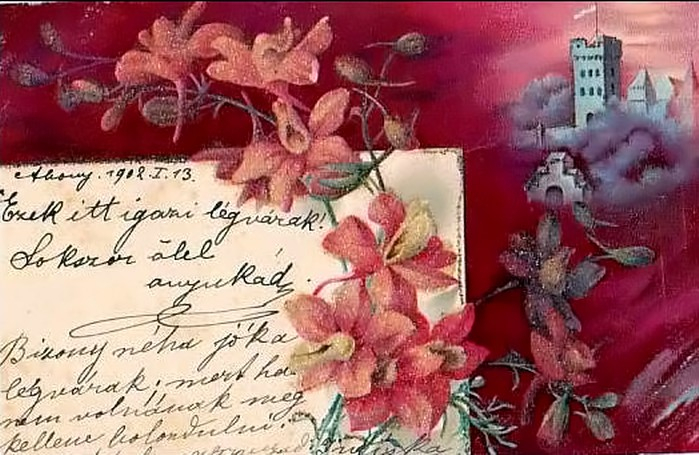 Abony. 1902.I.13.
Ezek itt igazi légvárak!
Sokszor ölel
anyukád.
Bizony néha jók a
légvárak, mert ha
nem volnának meg
kellene bolondulni.